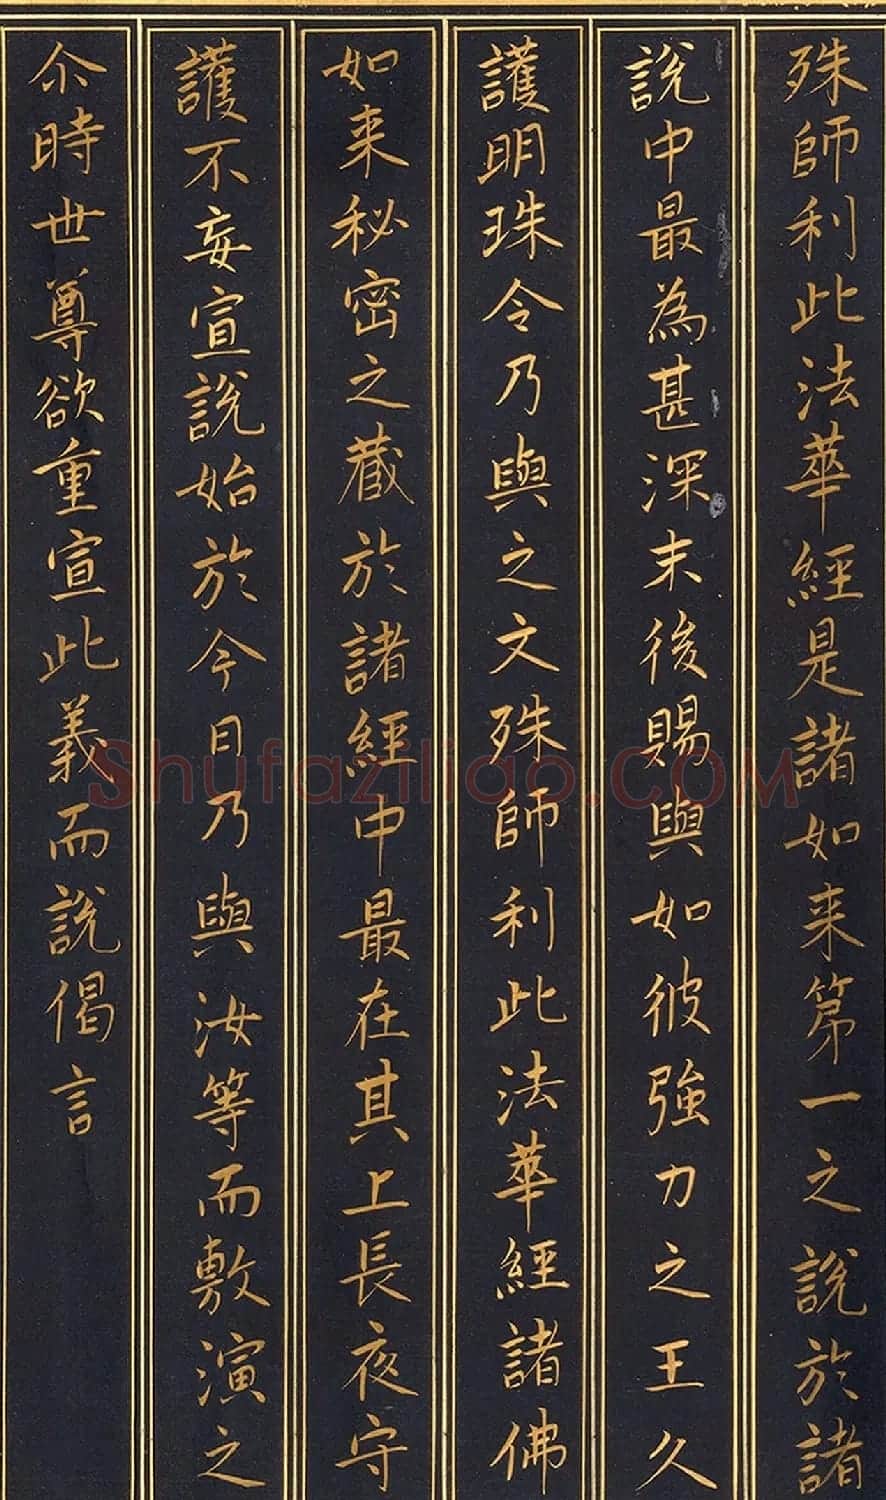 殊師利此法華經是諸如来第一之說於諸
說中最為甚深末後賜與如彼強力之王久
護明珠令乃與之文殊師利此法華經諸佛
如来秘密之蔵於諸經中最在其上長夜守
護不妄宣說始於今日乃與汝等而敷演之
尒時世尊欲重宣此義而說偈言
Shufaziliao.COM